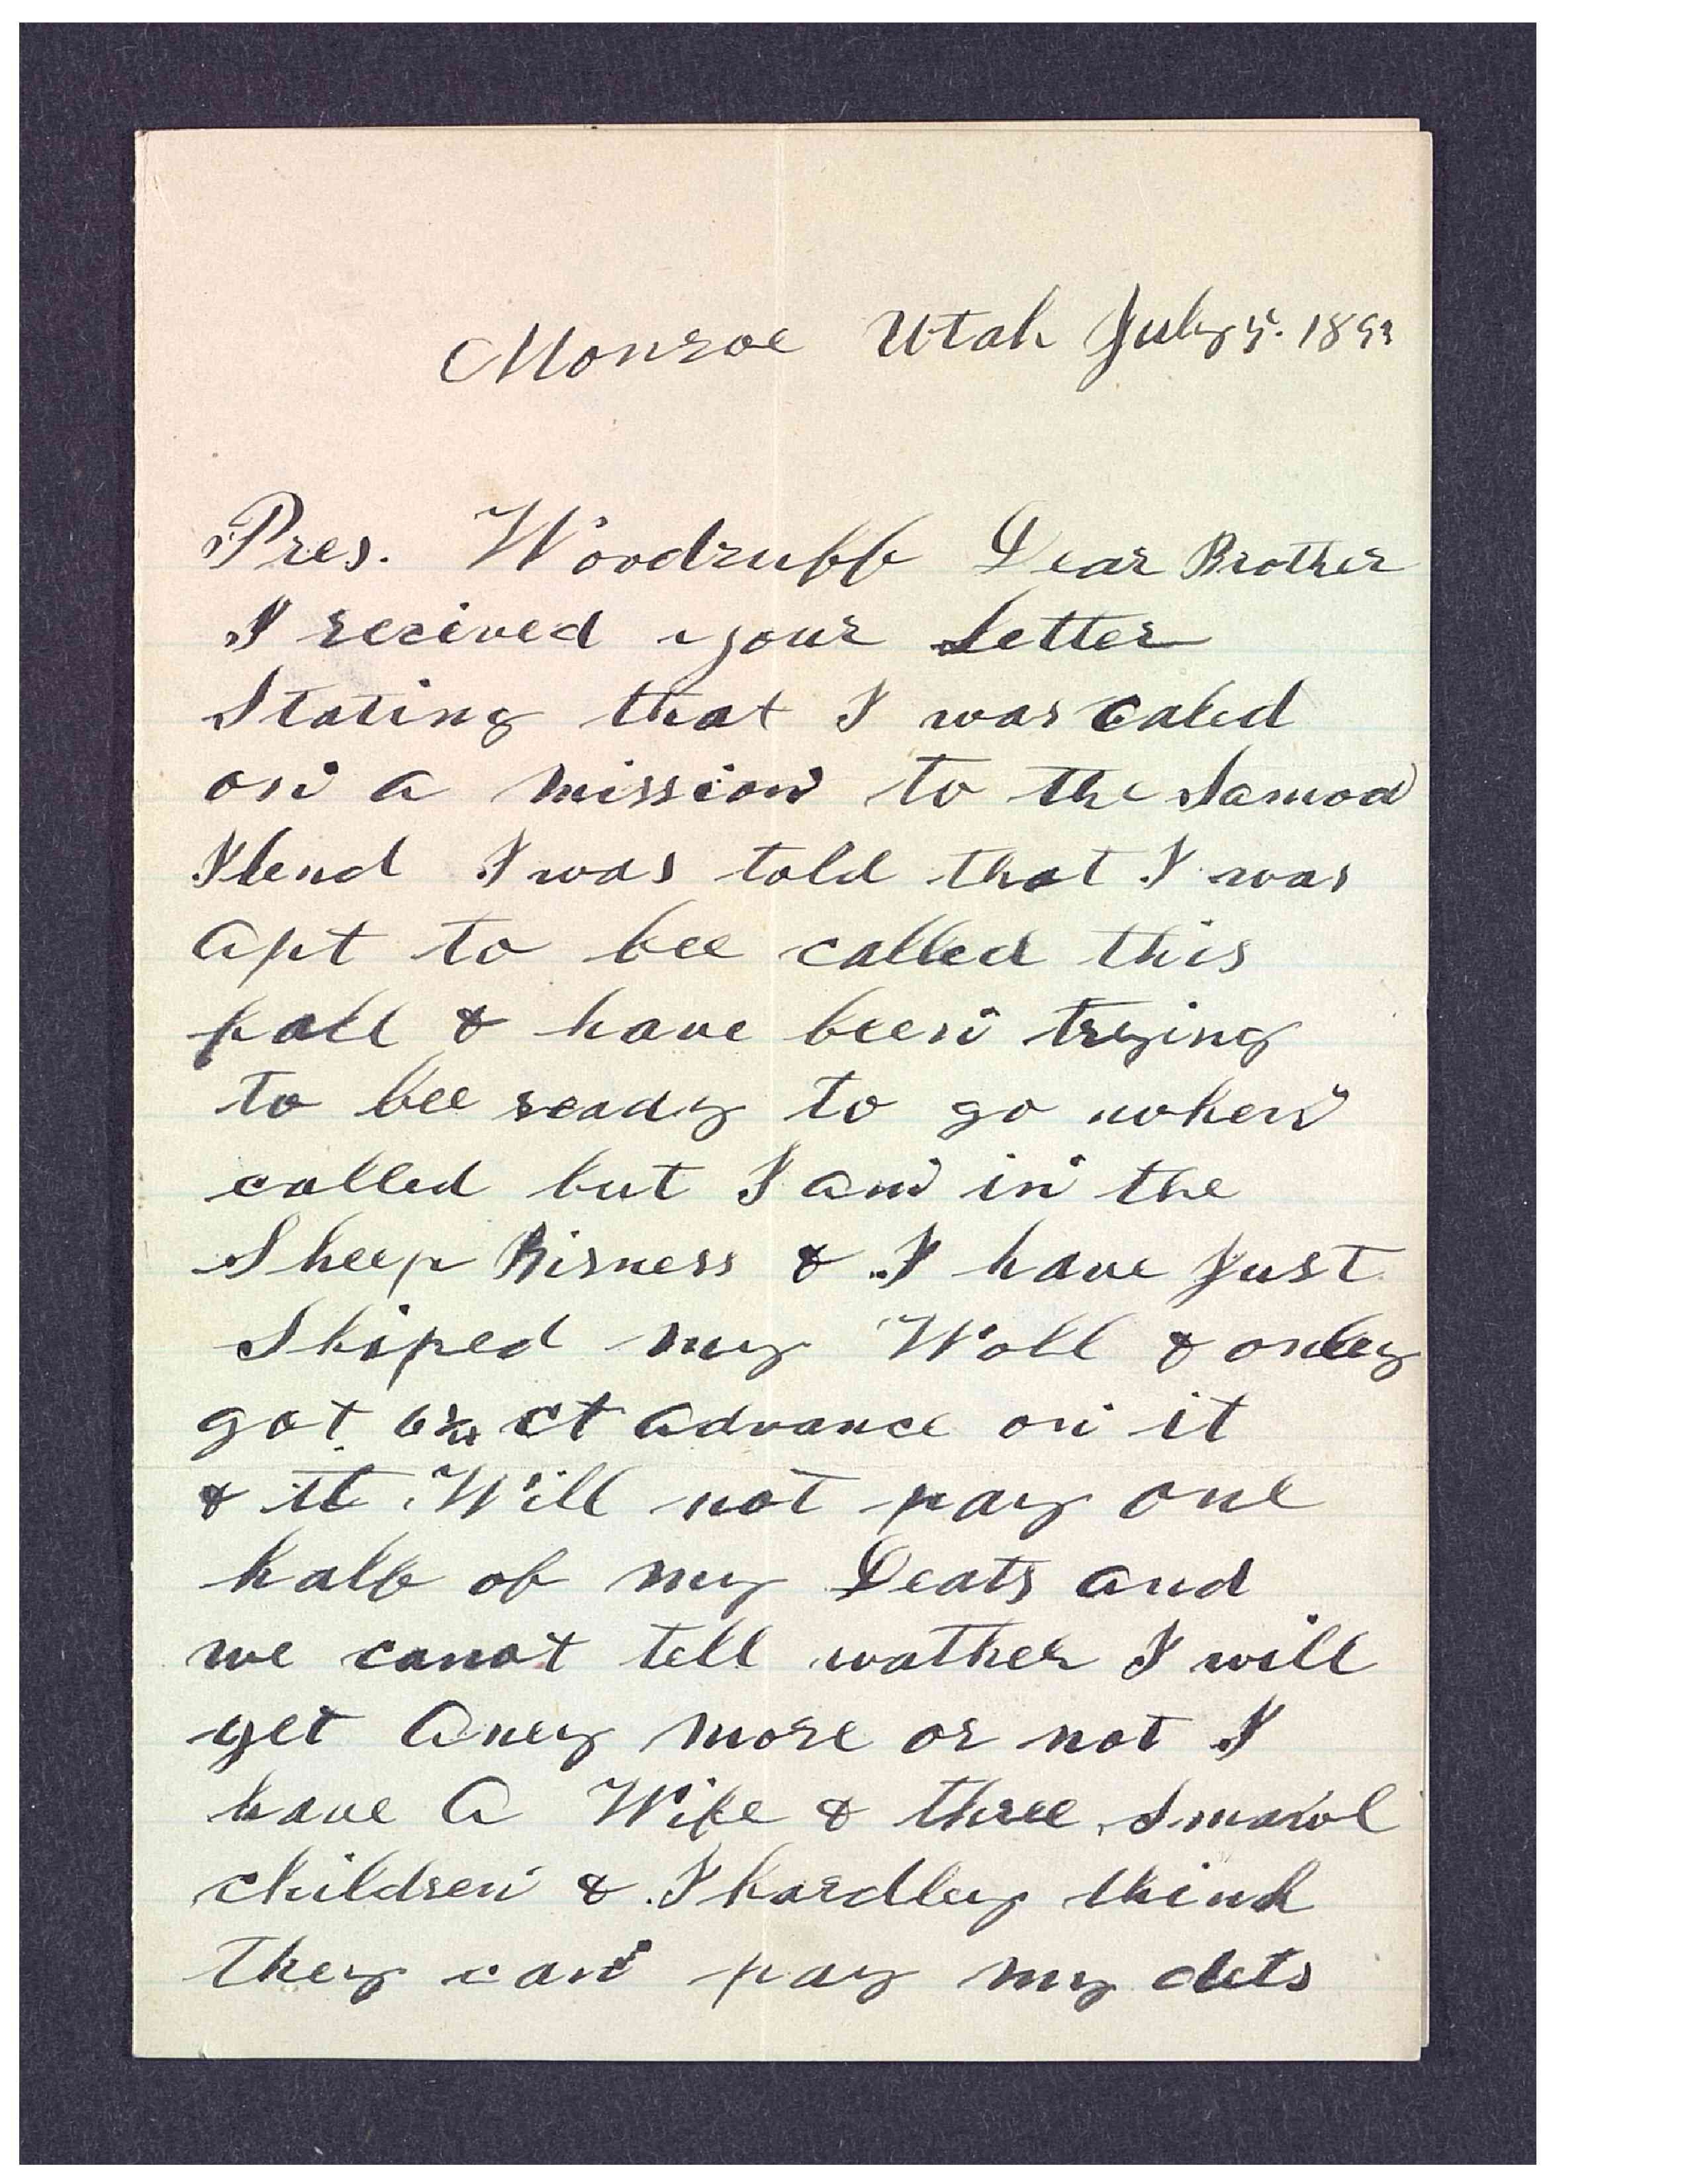 Monroe Utah July 5. 189
Pres. Woodruff Dear Brother
I recived your Letter
Stating that I was caled
on a mission to the Samoa
Ilend I was told that I was
apt to bee called this
fall & have been trying
to bee ready to go when
called but I am in the
Sheep Bisness & I have Just
Shiped my Woll & onley
got ct advance on it
& it Will not pay one
half of my Deats and
we canot tell wather I will
get Aney more or not I
have A Wife & three Smawl
children & I hardley think
they can pay my dets